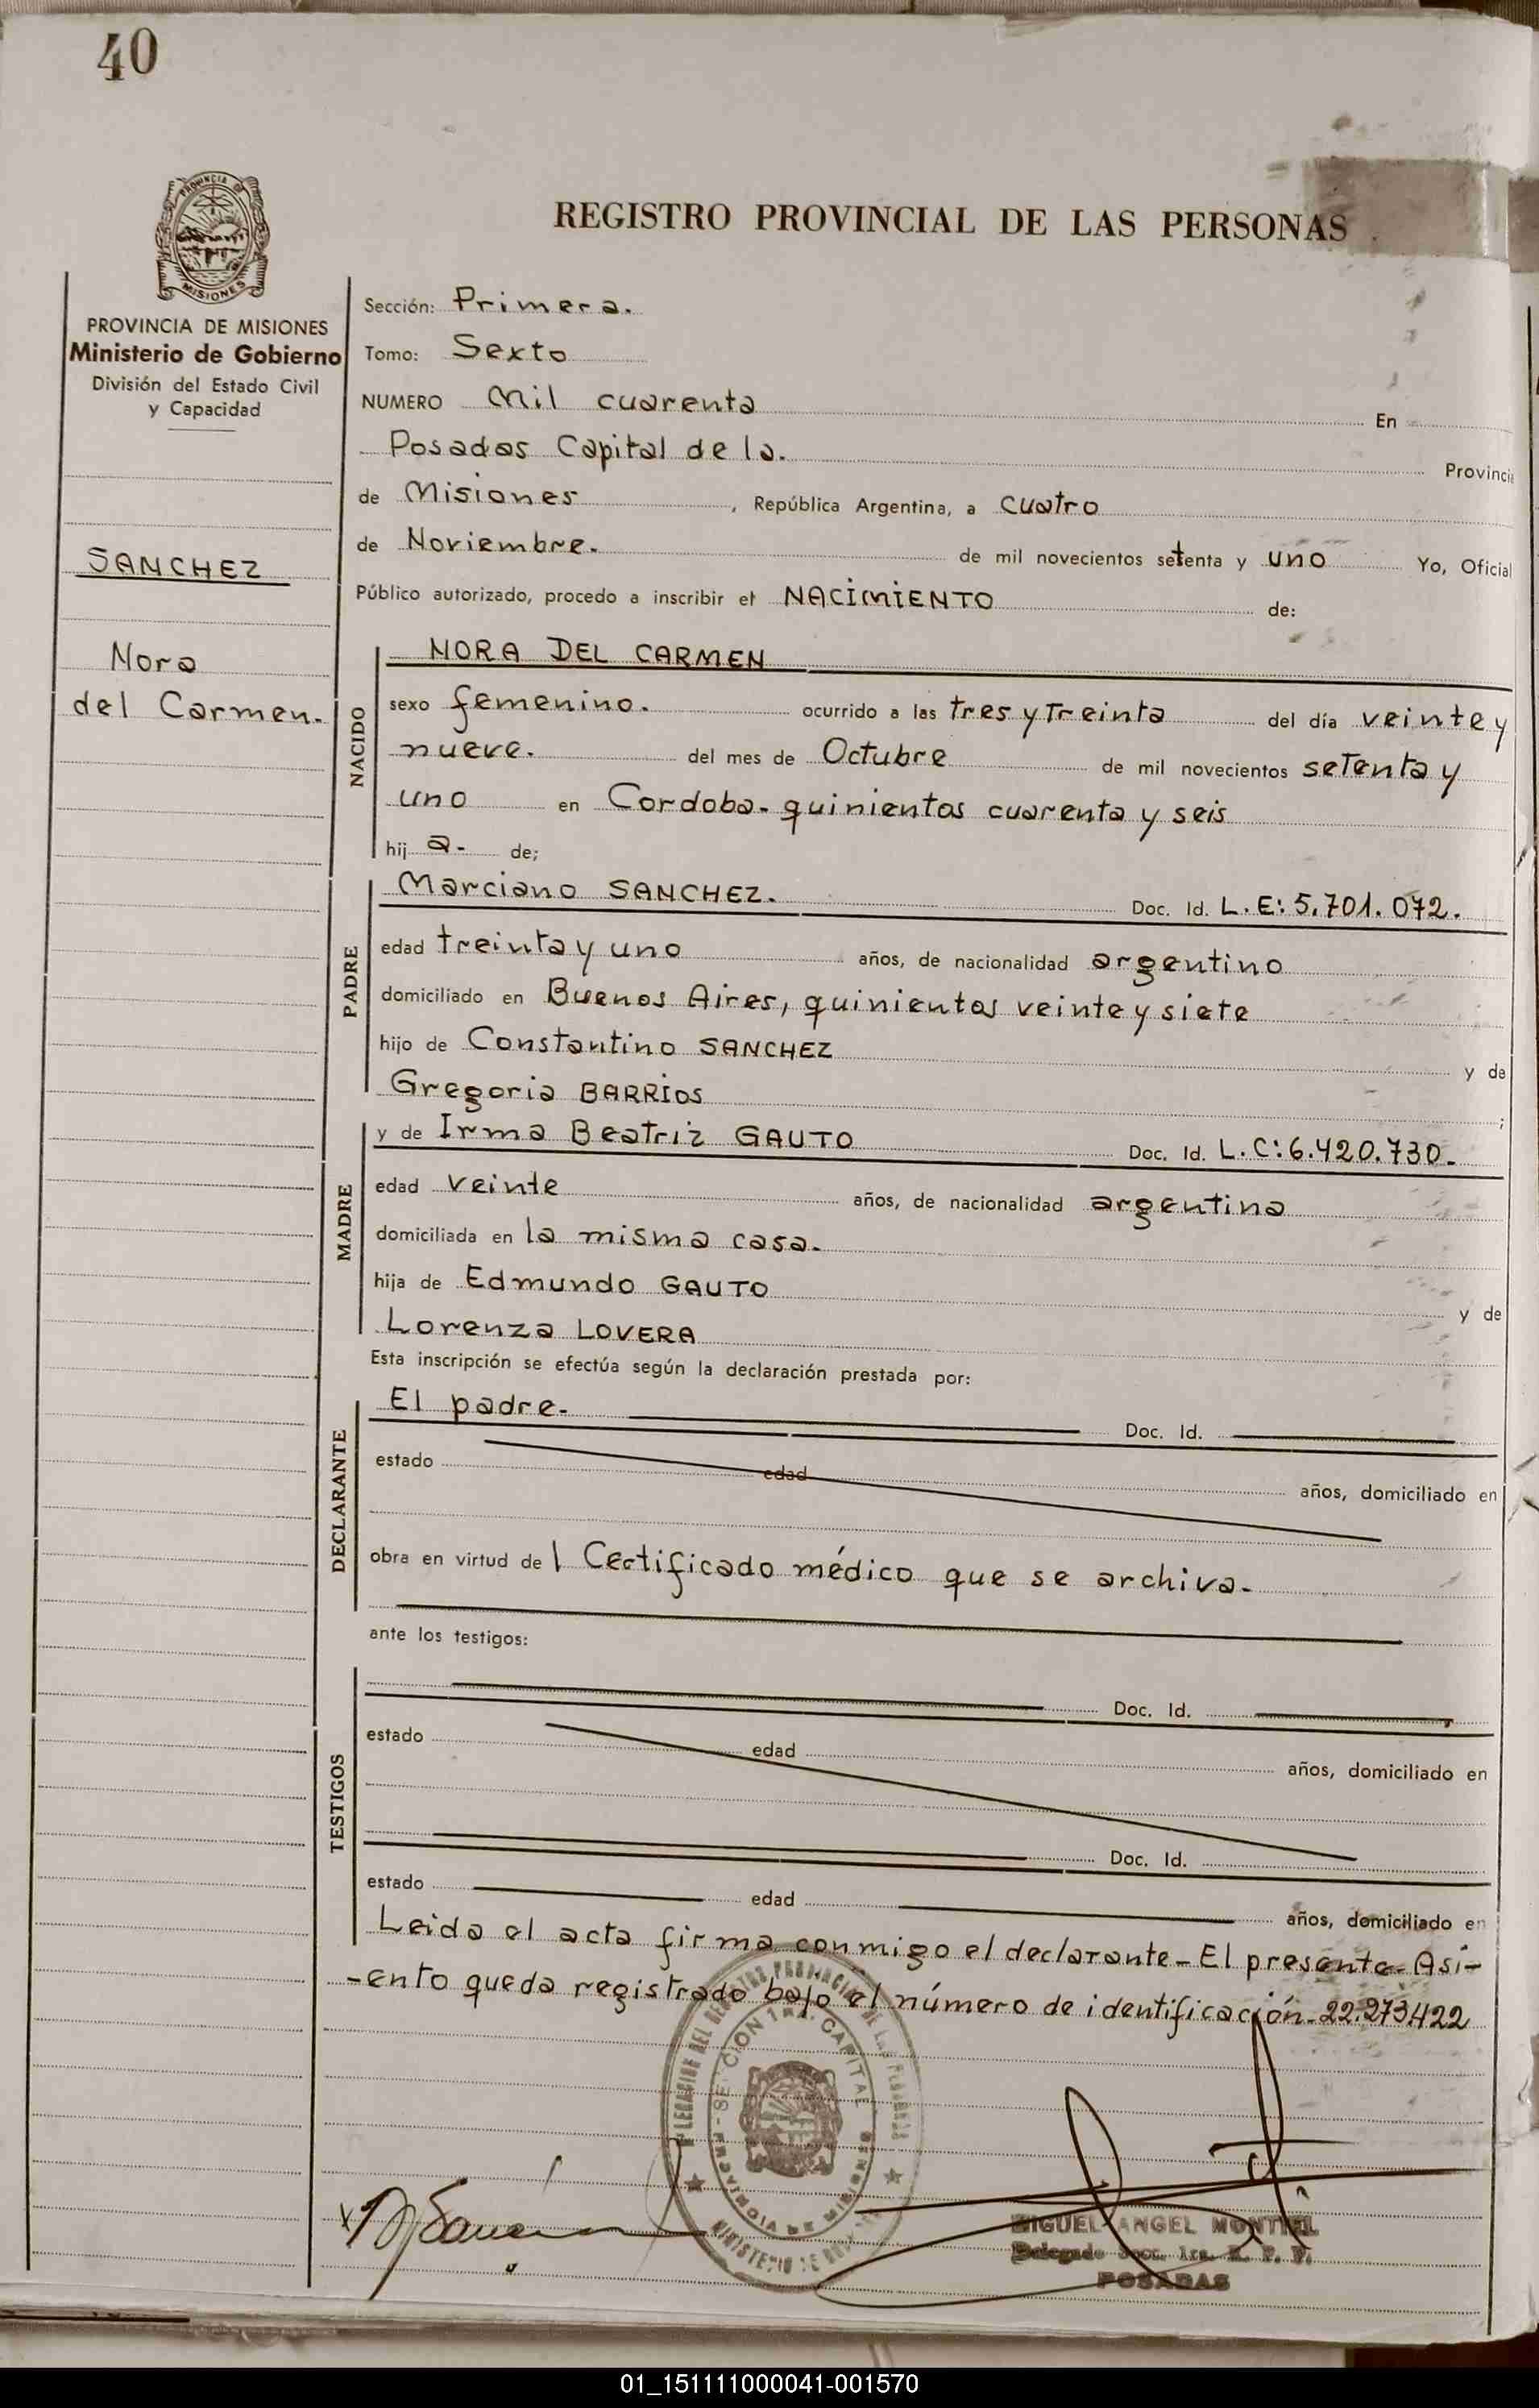 40
PROVINCIA DE
MISIONES
REGISTRO PROVINCIAL DE LAS PERSONAS
PROVINCIA DE MISIONES
Ministerio de Gobierno
División del Estado Civil
y Capacidad
SANCHEZ
Nora
del Carmen.
Sección: Primera.
Tomo: Sexto
NUMERO Mil cuarenta En
Posadas Capital de la. Provincia
de Misiones, República Argentina, a cuatro
de Noviembre. de mil novecientos setenta y uno Yo, Oficial
Público autorizado, procedo a inscribir el NACIMIENTO de:
NACIDO
NORA DEL CARMEN
sexo femenino. ocurrido a las tres y Treinta del día veinte y
nueve. del mes de Octubre de mil novecientos setenta y
uno en Cordoba- quinientos cuarenta y seis
hij a- de;
PADRE
Marciano SANCHEZ. Doc. Id. L.E: 5.701.072.
edad treinta y uno años, de nacionalidad argentino
domiciliado en Buenos Aires, quinientos veinte y siete
hijo de Constantino SANCHEZ y de
Gregoria BARRIOS ;
MADRE
y de Irma Beatriz GAUTO Doc. Id. L.C: 6.420.730-
edad veinte años, de nacionalidad argentina
domiciliada en la misma casa.
hija de Edmundo GAUTO y de
Lorenza LOVERA
Esta inscripción se efectúa según la declaración prestada por:
DECLARANTE
El padre- Doc. Id.
estado edad años, domiciliado en
obra en virtud del Certificado médico que se archiva-
ante los testigos:
TESTIGOS
Doc. Id.
estado edad años, domiciliado en
Doc. Id.
estado edad años, domiciliado en
Leida el acta firma conmigo el declarante- El presente Asi-
-ento queda registrado bajo el número de identificación-22.273.422
SECCION 1ra. CAPITAL
PROVINCIA DE MISIONES
MIGUEL ANGEL MONTIEL
Delegado Secc. 1ra. R. P. P.
POSADAS
01_151111000041-001570